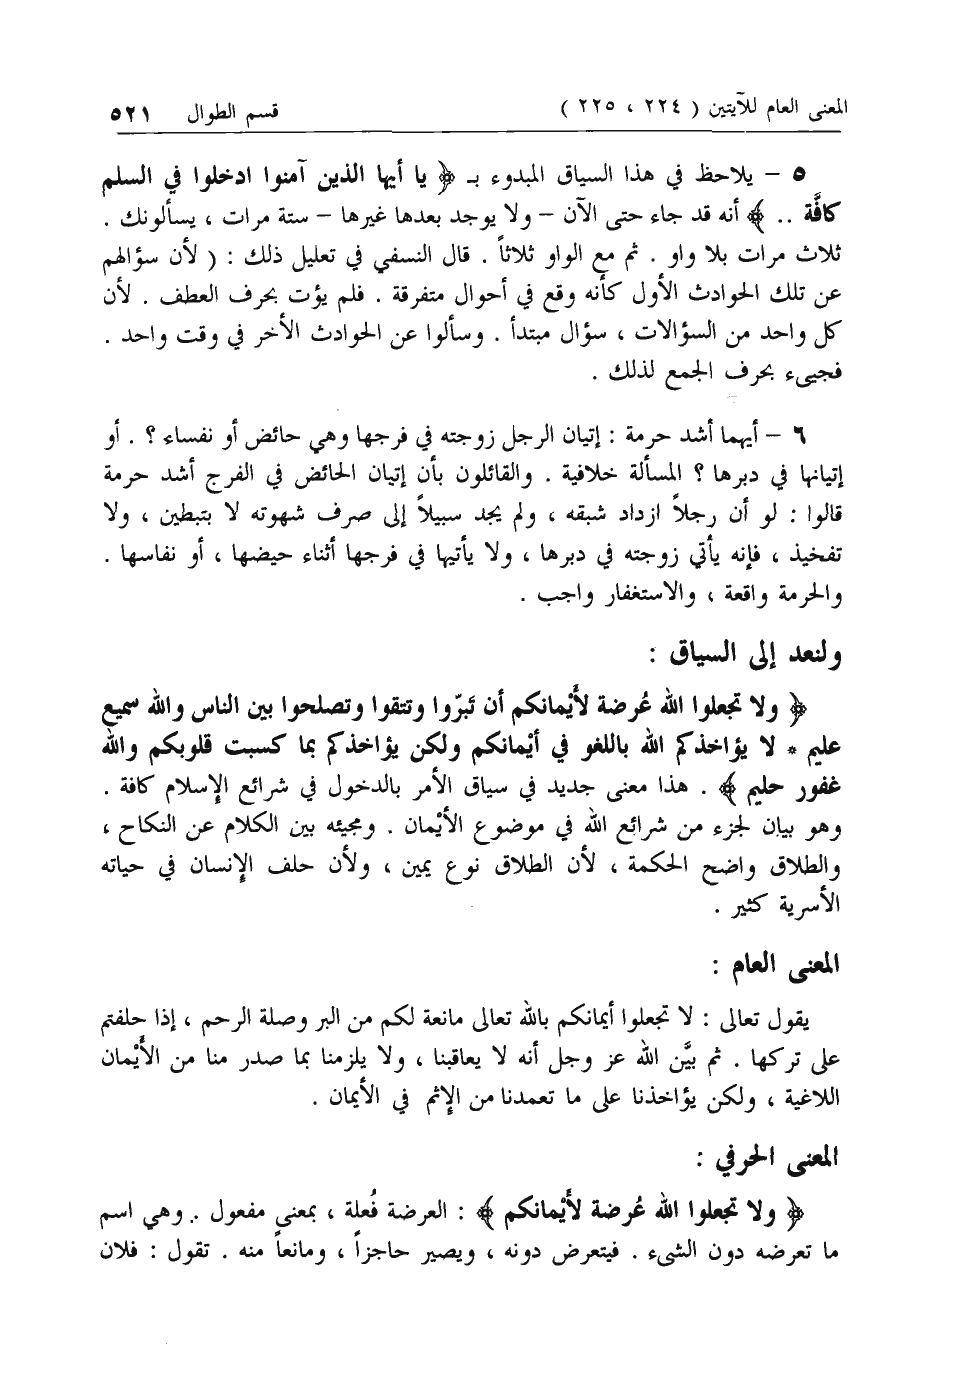 المعنى العام للآيتين ( ٢٢٤ ، ٢٢٥ ) قسم الطوال ٥٢١
٥ – يلاحظ في هذا السياق المبدوء بـ ﴿ يا أيها الذين آمنوا ادخلوا في السلم
كافَّة .. ﴾ أنه قد جاء حتى الآن – ولا يوجد بعدها غيرها – ستة مرات ، يسألونك .
ثلاث مرات بلا واو . ثم مع الواو ثلاثاً . قال النسفي في تعليل ذلك : ( لأن سؤالهم
عن تلك الحوادث الأول كأنه وقع في أحوال متفرقة . فلم يؤت بحرف العطف . لأن
كل واحد من السؤالات ، سؤال مبتدأ . وسألوا عن الحوادث الأخر في وقت واحد .
فجيىء بحرف الجمع لذلك .
٦ – أيهما أشد حرمة : إتيان الرجل زوجته في فرجها وهي حائض أو نفساء ؟ . أو
إتيانها في دبرها ؟ المسألة خلافية . والقائلون بأن إتيان الحائض في الفرج أشد حرمة
قالوا : لو أن رجلاً ازداد شبقه ، ولم يجد سبيلاً إلى صرف شهوته لا بتبطين ، ولا
تفخيذ ، فإنه يأتي زوجته في دبرها ، ولا يأتيها في فرجها أثناء حيضها ، أو نفاسها .
والحرمة واقعة ، والاستغفار واجب .
ولنعد إلى السياق :
﴿ ولا تجعلوا الله عُرضة لأَيْمانكم أن تَبرّوا وتتقوا وتصلحوا بين الناس والله سميع
عليم * لا يؤاخذكم الله باللغو في أيْمانكم ولكن يؤاخذكم بما كسبت قلوبكم والله
غفور حليم ﴾ . هذا معنى جديد في سياق الأمر بالدخول في شرائع الإسلام كافة .
وهو بيان لجزء من شرائع الله في موضوع الأيْمان . ومجيئه بين الكلام عن النكاح ،
والطلاق واضح الحكمة ، لأن الطلاق نوع يمين ، ولأن حلف الإنسان في حياته
الأسرية كثير .
المعنى العام :
يقول تعالى : لا تجعلوا أيمانكم بالله تعالى مانعة لكم من البر وصلة الرحم ، إذا حلفتم
على تركها . ثم بيَّن الله عز وجل أنه لا يعاقبنا ، ولا يلزمنا بما صدر منا من الأَيْمان
اللاغية ، ولكن يؤاخذنا على ما تعمدنا من الإثم في الأيمان .
المعنى الحرفي :
﴿ ولا تجعلوا الله عُرضة لأَيْمانكم ﴾ : العرضة فُعلة ، بمعنى مفعول . وهي اسم
ما تعرضه دون الشيء . فيتعرض دونه ، ويصير حاجزاً ، ومانعاً منه . تقول : فلان